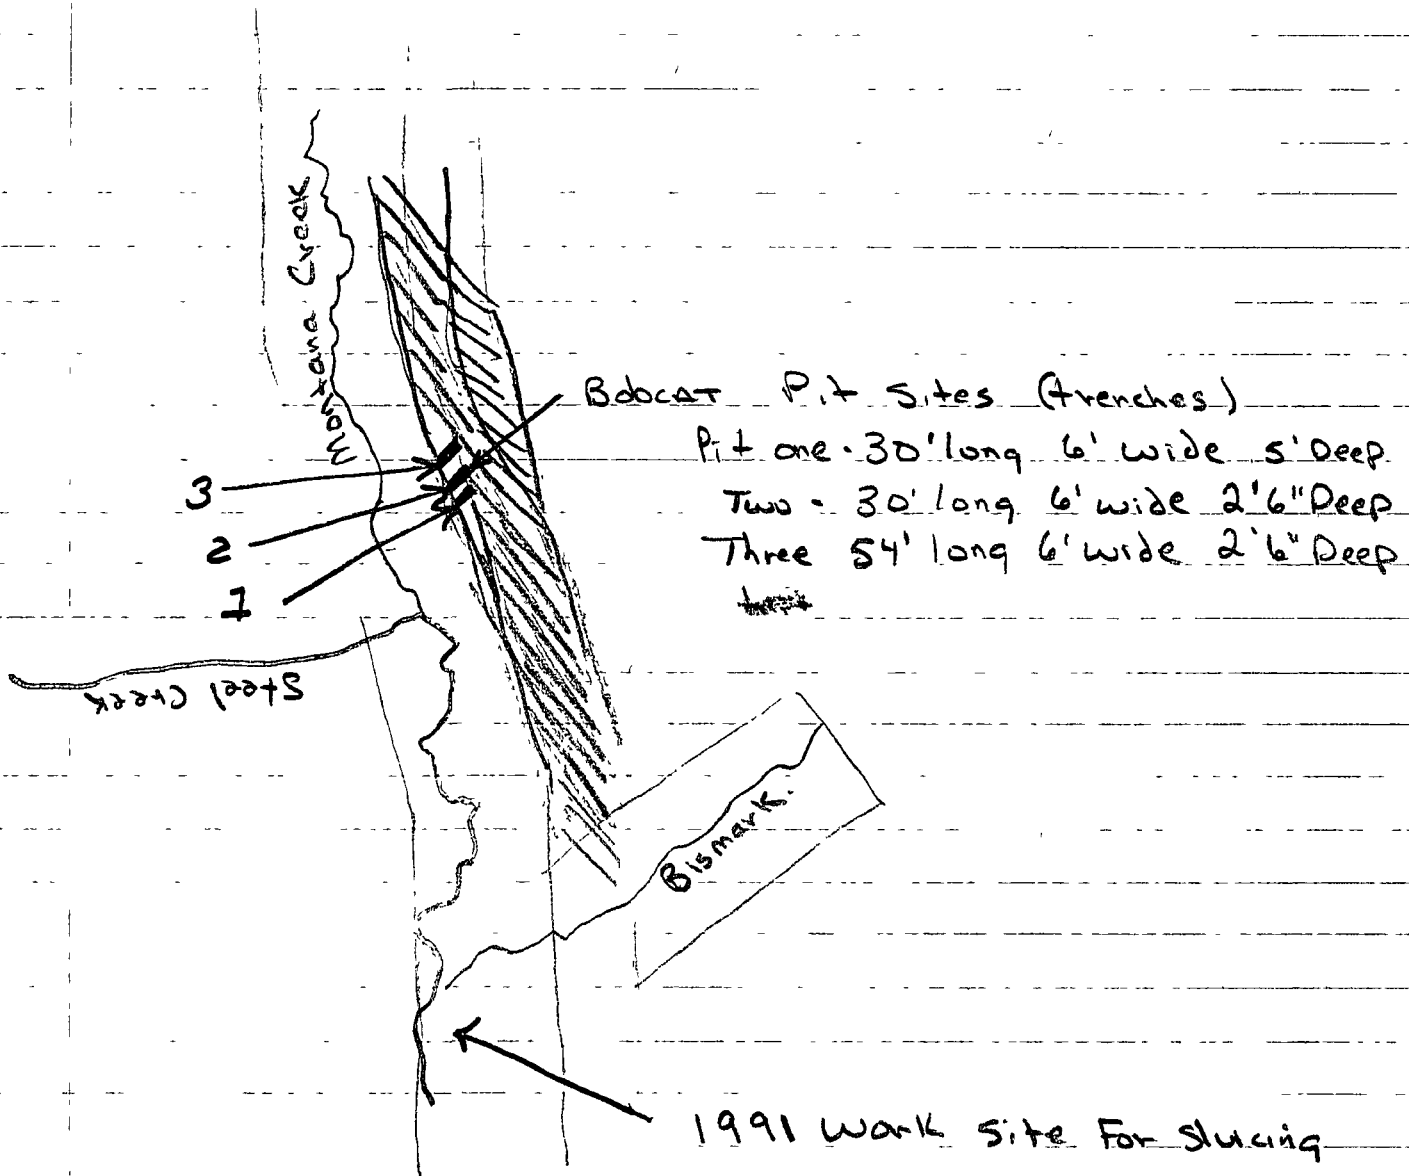 Montana Creek
Bobcat Pit Sites (trenches)
Pit one - 30' long 6' wide 5' Deep
3
Two - 30' long 6' wide 2'6" Deep
2
Three 54' long 6' wide 2'6" Deep
1
Steel Creek
Bismark.
1991 Work Site For Sluicing